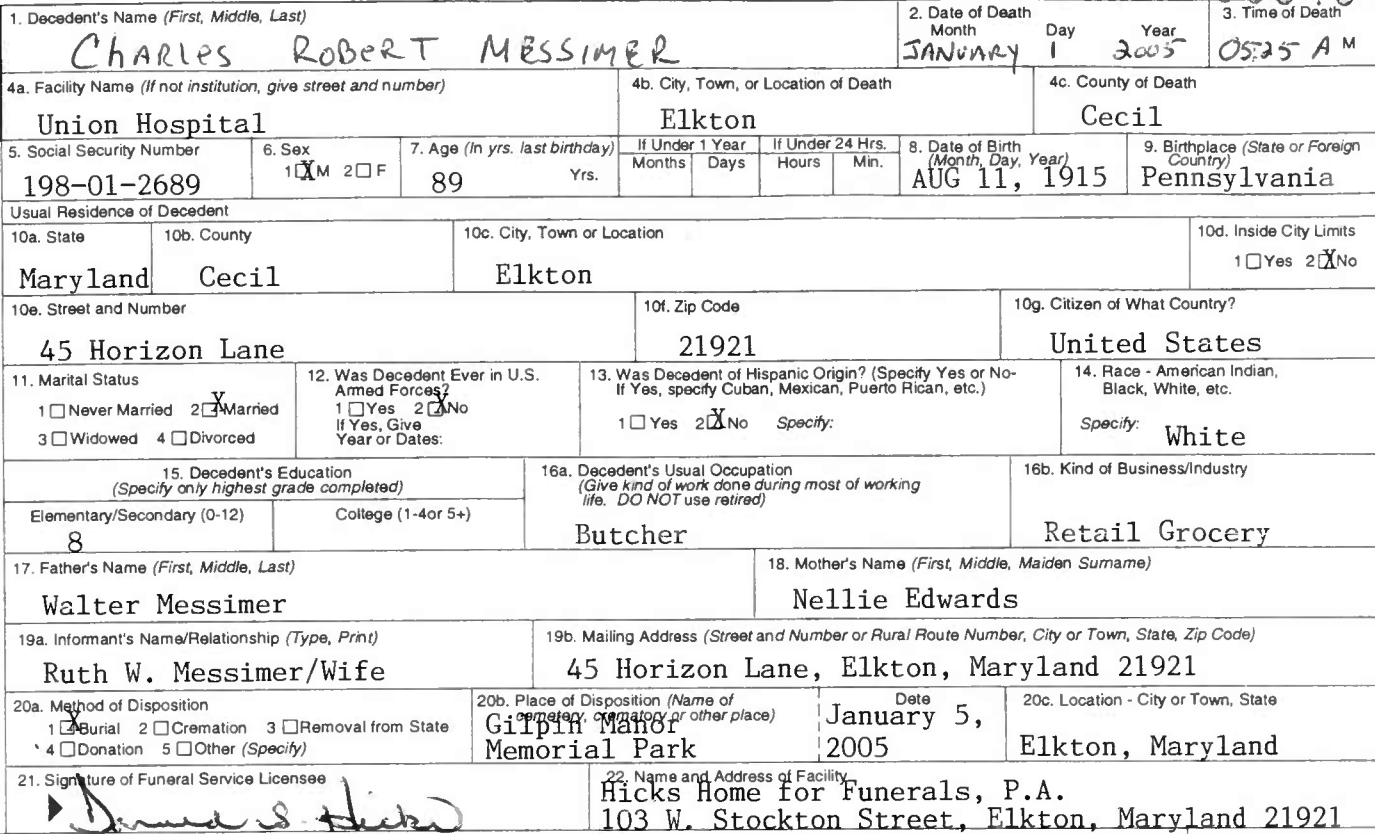 1. Decedent's Name (First, Middle, Last)
Charles Robert Messimer
2. Date of Death
Month Day Year
January 1 2005
3. Time of Death
05:25 A M
4a. Facility Name (If not institution, give street and number)
Union Hospital
4b. City, Town, or Location of Death
Elkton
4c. County of Death
Cecil
5. Social Security Number
198-01-2689
6. Sex
1 X M 2 □ F
7. Age (In yrs. last birthday)
89 Yrs.
If Under 1 Year
Months Days
If Under 24 Hrs.
Hours Min.
8. Date of Birth
(Month, Day, Year)
AUG 11, 1915
9. Birthplace (State or Foreign
Country)
Pennsylvania
Usual Residence of Decedent
10a. State
Maryland
10b. County
Cecil
10c. City, Town or Location
Elkton
10d. Inside City Limits
1 □ Yes 2 X No
10e. Street and Number
45 Horizon Lane
10f. Zip Code
21921
10g. Citizen of What Country?
United States
11. Marital Status
1 □ Never Married 2 X Married
3 □ Widowed 4 □ Divorced
12. Was Decedent Ever in U.S.
Armed Forces?
1 □ Yes 2 X No
If Yes, Give
Year or Dates:
13. Was Decedent of Hispanic Origin? (Specify Yes or No-
If Yes, specify Cuban, Mexican, Puerto Rican, etc.)
1 □ Yes 2 X No Specify:
14. Race - American Indian,
Black, White, etc.
Specify: White
15. Decedent's Education
(Specify only highest grade completed)
Elementary/Secondary (0-12)
8
College (1-4or 5+)
16a. Decedent's Usual Occupation
(Give kind of work done during most of working
life. DO NOT use retired)
Butcher
16b. Kind of Business/Industry
Retail Grocery
17. Father's Name (First, Middle, Last)
Walter Messimer
18. Mother's Name (First, Middle, Maiden Surname)
Nellie Edwards
19a. Informant's Name/Relationship (Type, Print)
Ruth W. Messimer/Wife
19b. Mailing Address (Street and Number or Rural Route Number, City or Town, State, Zip Code)
45 Horizon Lane, Elkton, Maryland 21921
20a. Method of Disposition
1 X Burial 2 □ Cremation 3 □ Removal from State
4 □ Donation 5 □ Other (Specify)
20b. Place of Disposition (Name of
cemetery, crematory or other place)
Gilpin Manor
Memorial Park
Date
January 5,
2005
20c. Location - City or Town, State
Elkton, Maryland
21. Signature of Funeral Service Licensee
S. Hicks
22. Name and Address of Facility
Hicks Home for Funerals, P.A.
103 W. Stockton Street, Elkton, Maryland 21921